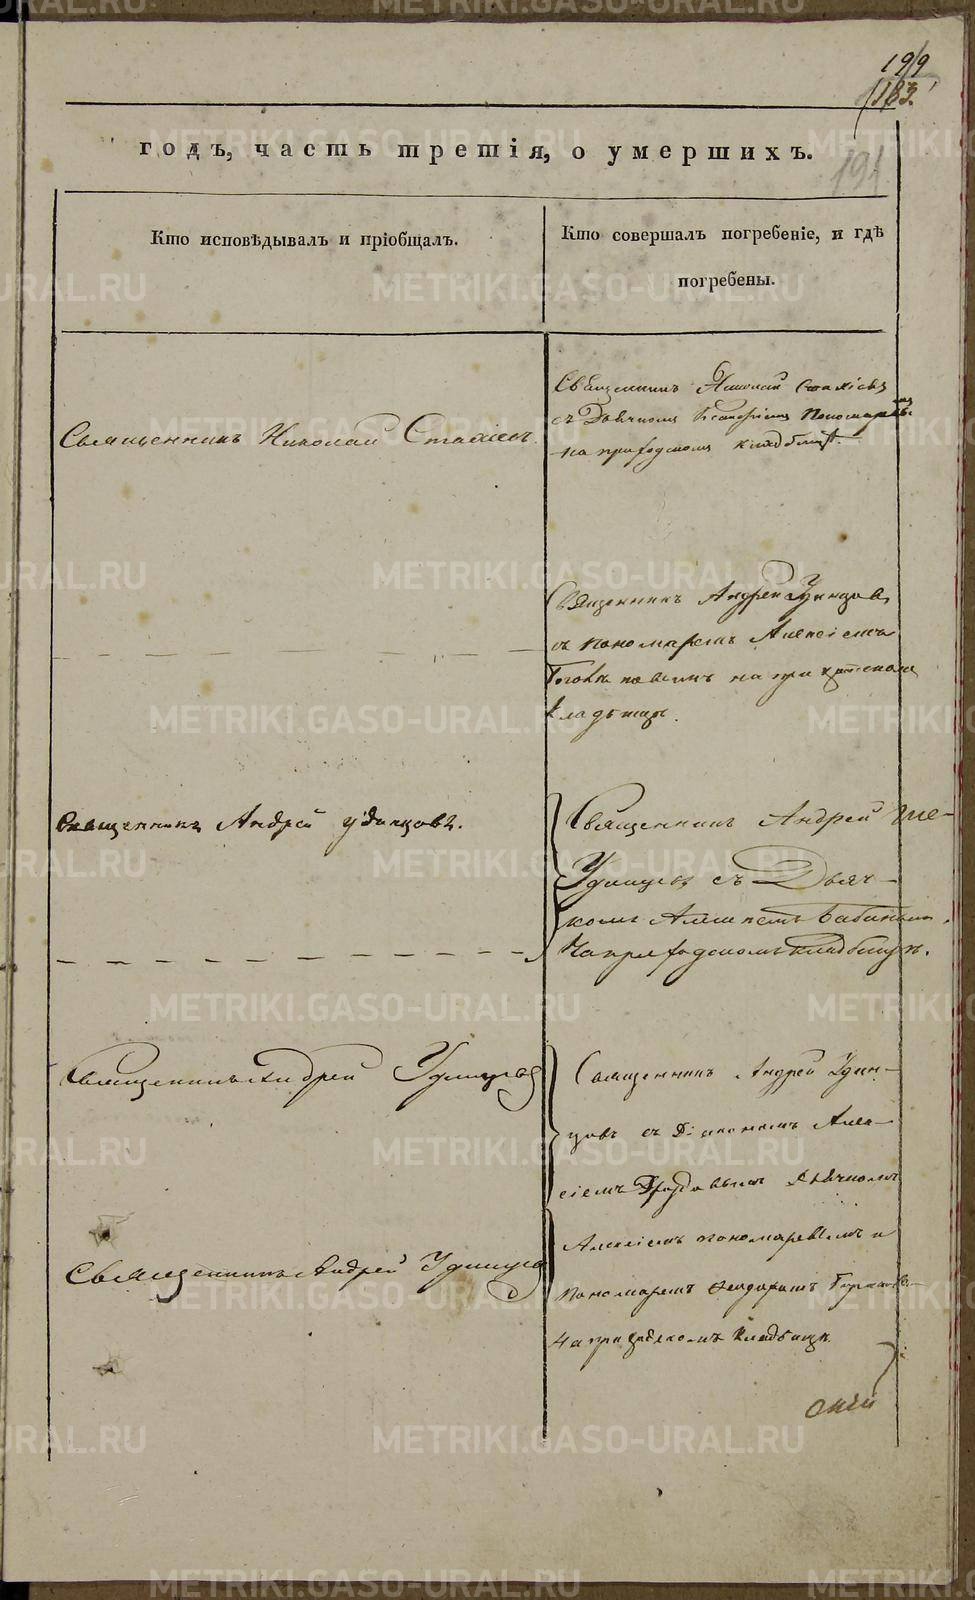 199
183.
191
годъ, часть третія, о умершихъ.
Кто исповѣдывалъ и пріобщалъ.
Кто совершалъ погребеніе, и гдѣ
погребены.
Священникъ Николай Стахіевъ.
Священникъ Николай Стахіевъ
съ Дьячкомъ Пономаревымъ
на приходскомъ кладбищѣ.
Священникъ Андрей Удинцовъ
съ пономаремъ Алексіемъ
на приходскомъ
кладбищѣ.
Священникъ Андрей Удинцовъ.
Священникъ Андрей
Удинцовъ съ Дьяч-
комъ Бабинымъ.
На приходскомъ кладбищѣ.
Священникъ Андрей Удинцовъ
Священникъ Андрей Удин-
цовъ съ Діакономъ Алек-
сіемъ Дьячкомъ
Священникъ Андрей Удинцовъ
Алексіемъ пономаревымъ и
Пономаремъ Феодоромъ
На приходскомъ кладбищѣ.
METRIKI.GASO-URAL.RU